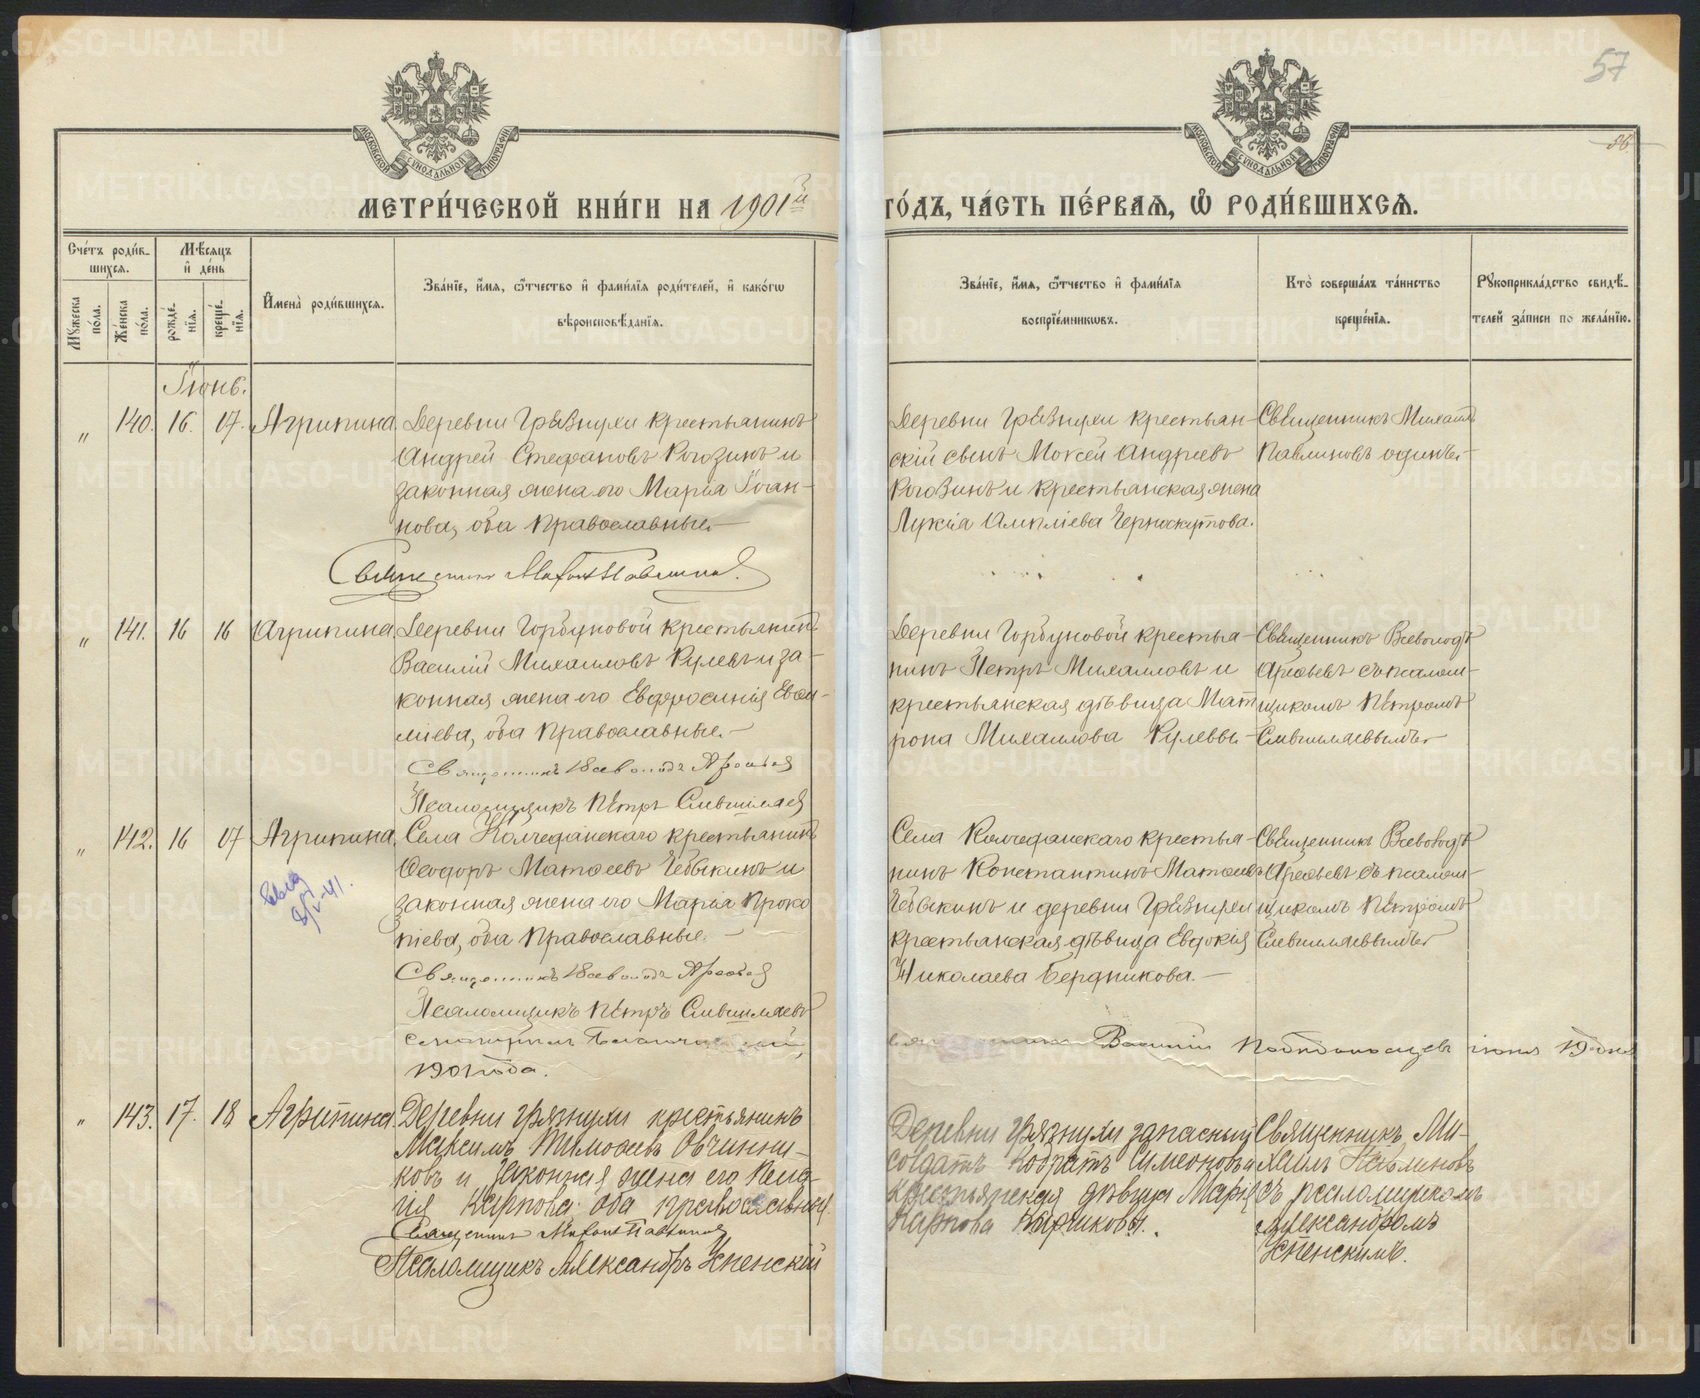 57
56
МОСКОВСКОЙ СѴНОДАЛЬНОЙ ТИПОГРАФІИ
МОСКОВСКОЙ СѴНОДАЛЬНОЙ ТИПОГРАФІИ
МЕТРИ́ЧЕСКОЙ КНИ́ГИ НА 1901й
ГО́ДЪ, ЧА́СТЬ ПЕ́РВАѦ, Ѡ҆ РОДИ́ВШИХСѦ.
Сче́тъ роди́в-
шихсѧ.
Мѣ́сѧцъ
и҆ де́нь
Мꙋ́жеска
по́ла.
Же́нска
по́ла.
рожде́-
нїѧ.
креще́-
нїѧ.
И҆мена̀ роди́вшихсѧ.
Зва́нїе, и҆́мѧ, ѻ҆́тчество и҆ фами́лїѧ роди́телей, и҆ како́гѡ
вѣроисповѣ́данїѧ.
Зва́нїе, и҆́мѧ, ѻ҆́тчество и҆ фами́лїѧ
воспрїе́мникѡвъ.
Кто̀ соверша́лъ та́инство
креще́нїѧ.
Рꙋкоприкла́дство свидѣ́-
телей за́писи по жела́нїю.
Іюнь.
" 140. 16. 17. Агрипина.
Деревни Грязнухи крестьянинъ
Андрей Стефановъ Рогозинъ и
законная жена его Марія Іоан-
нова, оба православные.-
Священникъ Михаилъ Павлиновъ.
Деревни Грязнухи крестьян-
скій сынъ Моѵсей Андреевъ
Рогозинъ и крестьянская жена
Лукія Алипіева Черноскутова.
Священникъ Михаилъ
Павлиновъ одинъ.-
" 141. 16 16 Агрипина.
Деревни Горбуновой крестьянинъ
Василій Михаиловъ Кулевъ и за-
конная жена его Евфросинія Евѳи-
міева, оба православные.-
Священникъ Всеволодъ Арефьев
Псаломщикъ Петръ
Деревни Горбуновой крестья-
нинъ Петръ Михаиловъ и
крестьянская дѣвица Мат
рона Михаилова Кулевы.-
Священникъ Всеволодъ
Арефьевъ съ псалом-
щикомъ Петромъ
" 142. 16 17 Агрипина.
Села Колчеданскаго крестьянинъ
Ѳеодоръ Матѳеевъ Чебыкинъ и
законная жена его Марія Проко
піева, оба православные. -
Священникъ Всеволодъ Арефьев
Псаломщикъ Петръ
1901 года.
Села Колчеданскаго крестья-
нинъ Константинъ Матѳеевъ
Чебыкинъ и деревни Грязнухи
крестьянская дѣвица Евдокія
Николаева Бердникова.-
Священникъ Всеволодъ
Арефьевъ съ псалом-
щикомъ Петромъ
Василій іюня 19 дня
" 143. 17. 18 Агрипина.
Деревни Грязнухи крестьянинъ
Максимъ Тимоѳеевъ Овчинни-
ковъ и законная жена его Пела-
гія Карпова оба православныя.
Священникъ Михаилъ Павлиновъ
Псаломщикъ Александръ Успенскій
Деревни Грязнухи запасный
солдатъ Кодратъ Симеоновъ и
крестьянская дѣвица Марія
Карпова
Священникъ Ми-
хаилъ Павлиновъ
съ псаломщикомъ
Александромъ
Успенскимъ.
METRIKI.GASO-URAL.RU